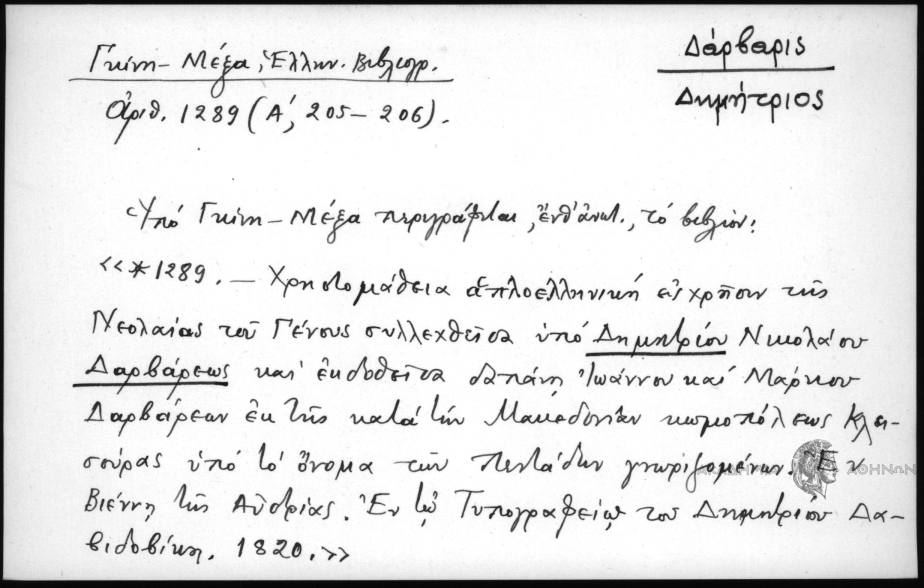 Γκίνη – Μέξα, Ἑλλην. Βιβλιογρ.
Δάρβαρις
Δημήτριος
Ἀριθ. 1289 (Α΄, 205 – 206).
Ὑπό Γκίνη – Μέξα περιγράφεται, ἔνθ' ἀνωτ., τό βιβλίον:
«*1289. — Χρηστομάθεια ἁπλοελληνική εἰς χρῆσιν τῆς
Νεολαίας τοῦ Γένους συλλεχθεῖσα ὑπό Δημητρίου Νικολάου
Δαρβάρεως καί ἐκδοθεῖσα δαπάνῃ Ἰωάννου καί Μάρκου
Δαρβάρεων ἐκ τῆς κατά τήν Μακεδονίαν κωμοπόλεως Κλει-
σούρας ὑπό τό ὄνομα τῶν Πεντάδων γνωριζομένων. Ἐν
Βιέννῃ τῆς Αὐστρίας. Ἐν τῷ Τυπογραφείῳ τοῦ Δημητρίου Δα-
βιδοβίκη. 1820.»
ΑΚΑΔΗΜΙΑ ΑΘΗΝΩΝ